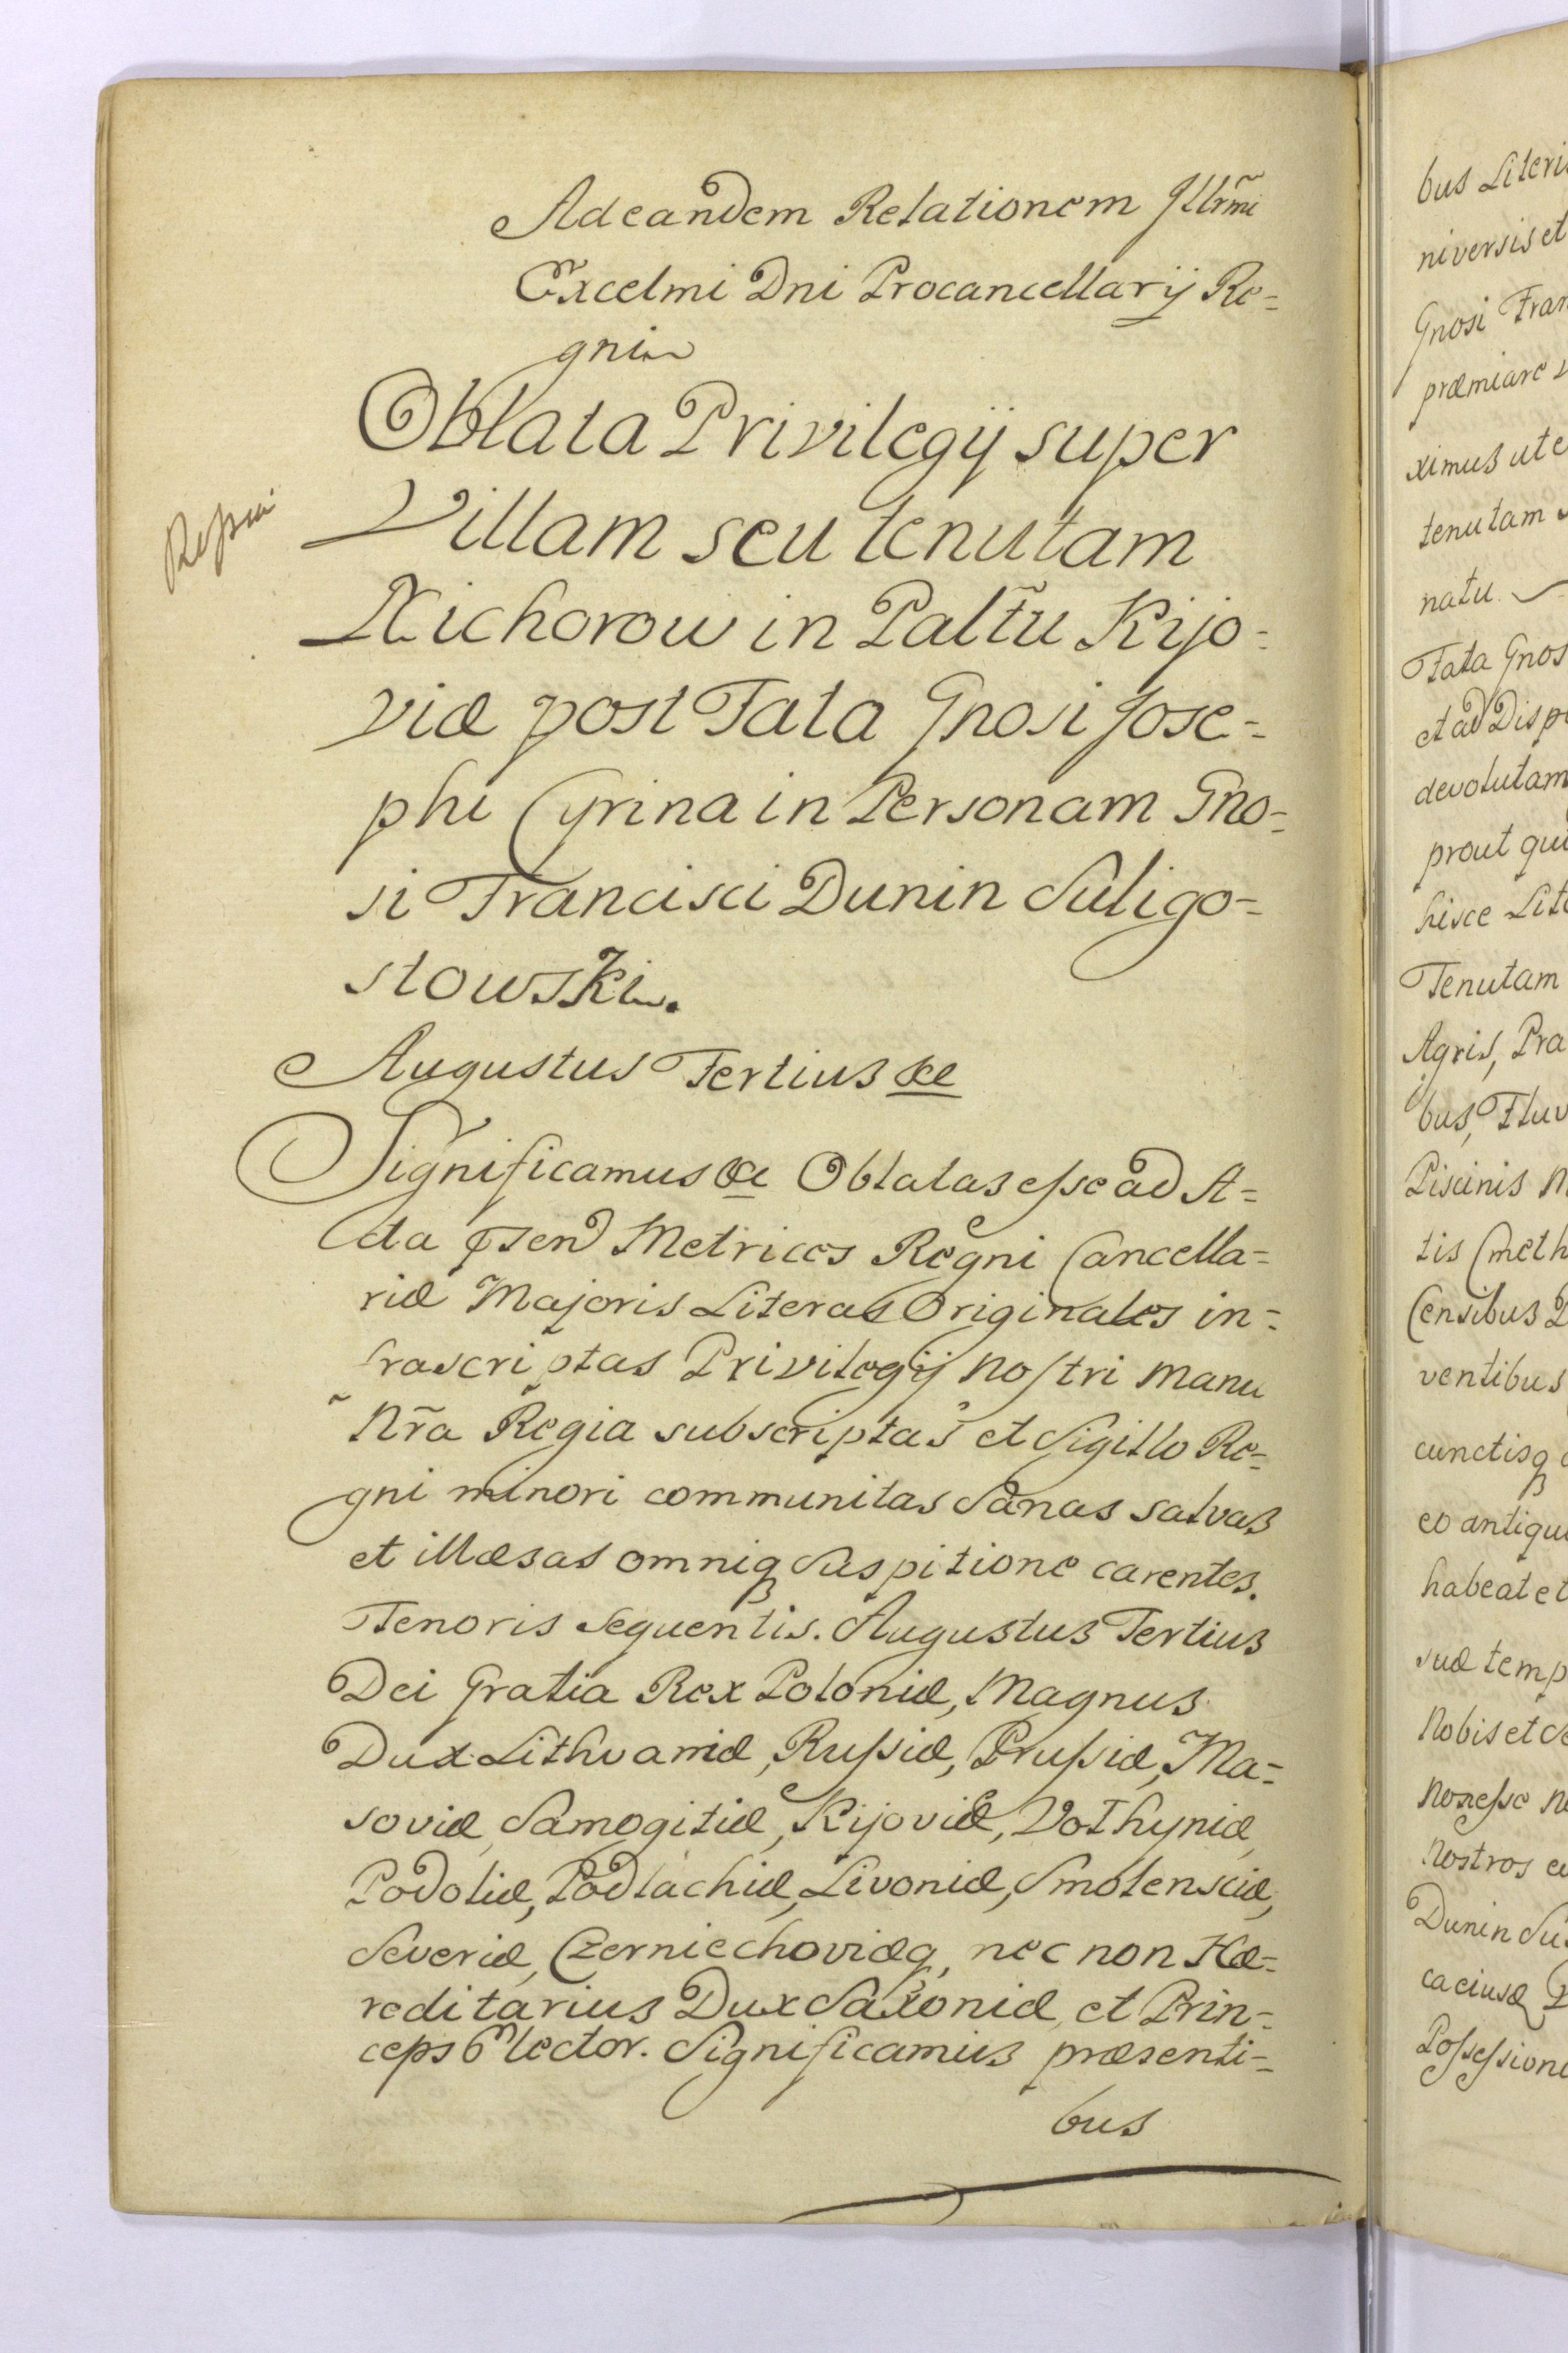 Ad eandem Relationem Jllrm̃i
Excelmi Dni Procancellarij Re=
gni
Oblata Privilegij super
Villam seu tenutam
Nichorow in Palt̃tu Kijo=
viæ post Fata Gnosi Jose=
phi Cyrina in Personam Gno=
si Francisci Dunin Suligo=
stowski.
Augustus Tertius &c
Significamus &c Oblatas esse ad A=
cta Metrices Regni Cancella=
riæ Majoris Literas Originales in=
frascriptas Privilegij nostri manu
Nr̃a Regia subscriptas et Sigillo Re=
gni minori communitas Sanas salvas
et illæsas omniq Suspitione carentes.
Tenoris Sequentis. Augustus Tertius
Dei Gratia Rex Poloniæ, Magnus
Dux Lithvaniæ, Russiæ, Prussiæ, Ma=
soviæ, Samogitiæ, Kijoviæ, Volhyniæ
Podoliæ, Podlachiæ, Livoniæ, Smolensciæ,
Severiæ, Czerniechoviæq, nec non Hæ=
reditarius Dux Saxoniæ, et Prin=
ceps Elector. Significamus præsenti=
bus
bus Literis
niversis et
Gnosi Fran
præmiare
ximus ut e
tenutam
natu
Fata Gnos
et ad Disp
devolutam
prout qui
hisce Lite
Tenutam
Agris, Pra
bus, Fluv
Piscinis M
tis Cmeth
Censibus D
ventibus
cunctisq
eo antiqu
habeat et
suæ temp
Nobis et Se
Non esse n
Nostros
Dunin Su
ca eiusq
Possession